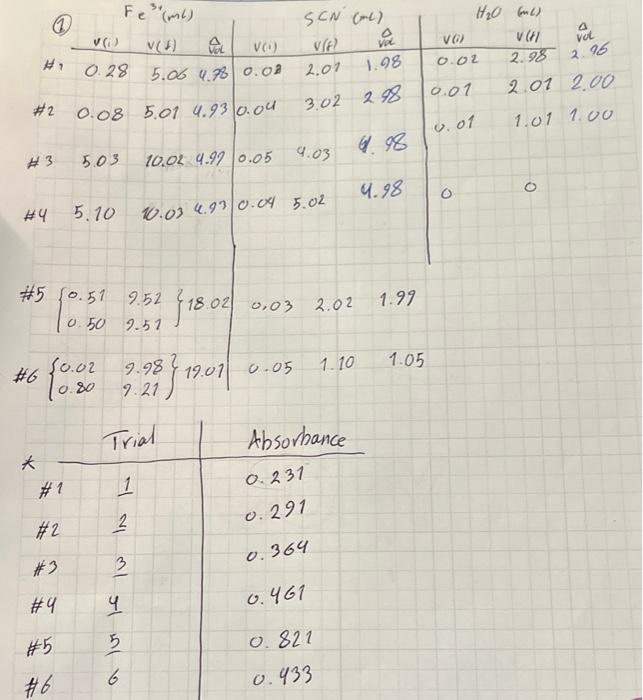 ① Fe³⁺(ml) SCN⁻(mL) H₂O (mL)
V(i) V(f) Δvol V(i) V(f) Δvol V(i) V(f) Δvol
#1 0.28 5.06 4.78 0.02 2.01 1.98 0.02 2.98 2.96
#2 0.08 5.01 4.93 0.04 3.02 2.98 0.01 2.01 2.00
#3 5.03 10.02 4.99 0.05 4.03 4.98 0.01 1.01 1.00
#4 5.10 10.03 4.93 0.04 5.02 4.98 0 0
#5 {0.51 9.52} 18.02 0.03 2.02 1.99
{0.50 9.51}
#6 {0.02 9.98} 19.01 0.05 1.10 1.05
{0.80 9.21}
* Trial Absorbance
#1 1 0.231
#2 2 0.291
#3 3 0.364
#4 4 0.461
#5 5 0.821
#6 6 0.433